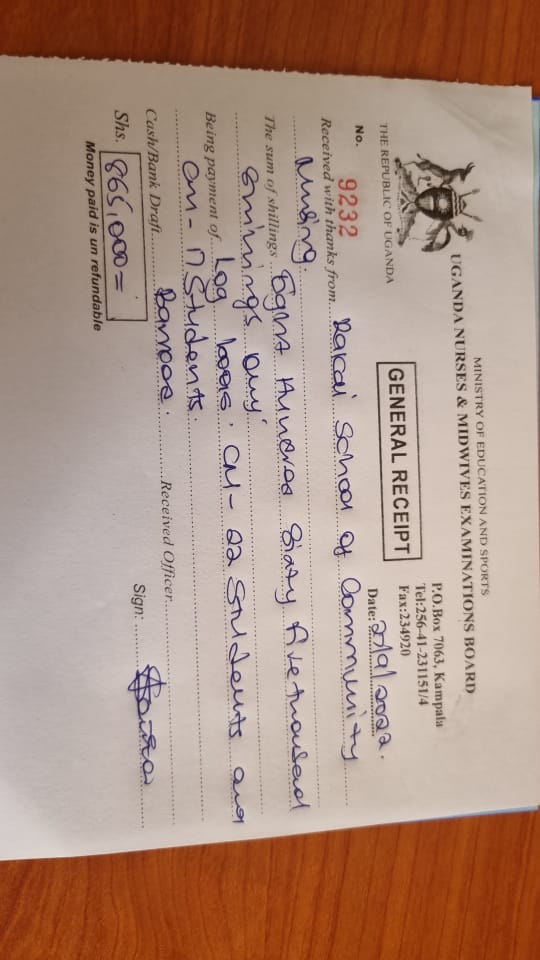 MINISTRY OF EDUCATION AND SPORTS
UGANDA NURSES & MIDWIVES EXAMINATIONS BOARD
P.O.Box 7063, Kampala
Tel:256-41-231151/4
Fax:234920
THE REPUBLIC OF UGANDA
GENERAL RECEIPT
No. 9232
Date: 2/9/2022.
Received with thanks from Rakai School of Community
Nursing.
The sum of shillings Eight Hundred Sixty five thousand
Shillings only.
Being payment of Log books. CN - 22 Students and
CM - 17 Students.
Cash/Bank Draft Received Officer
Shs. 865,000= Sign:
Money paid is un refundable